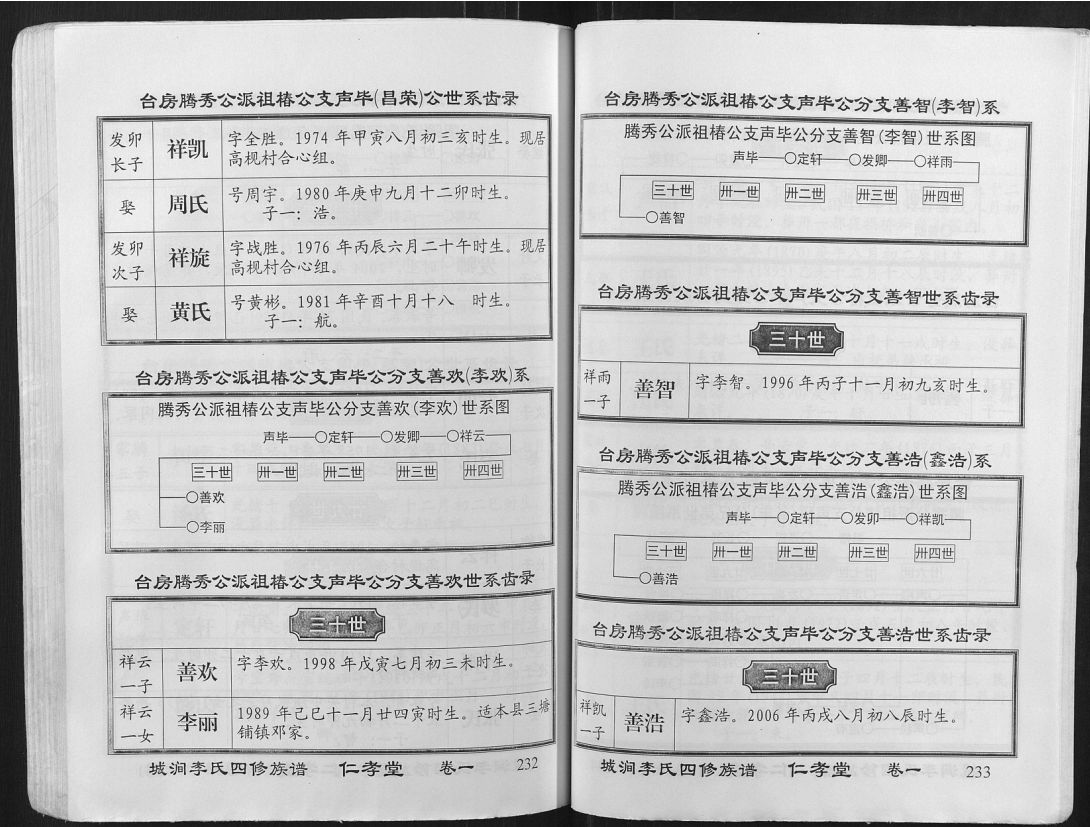 台房腾秀公派祖椿公支声毕(昌荣)公世系齿录
发卯
长子
祥凯
字全胜。1974年甲寅八月初三亥时生。现居
高枧村合心组。
娶
周氏
号周宇。1980年庚申九月十二卯时生。
子一：浩。
发卯
次子
祥旋
字战胜。1976年丙辰六月二十午时生。现居
高枧村合心组。
娶
黄氏
号黄彬。1981年辛酉十月十八　时生。
子一：航。
台房腾秀公派祖椿公支声毕公分支善欢(李欢)系
腾秀公派祖椿公支声毕公分支善欢(李欢)世系图
声毕——○定轩——○发卿——○祥云
三十世 卅一世 卅二世 卅三世 卅四世
○善欢
○李丽
台房腾秀公派祖椿公支声毕公分支善欢世系齿录
三十世
祥云
一子
善欢
字李欢。1998年戊寅七月初三未时生。
祥云
一女
李丽
1989年己巳十一月廿四寅时生。适本县三塘
铺镇邓家。
城涧李氏四修族谱 仁孝堂 卷一 232
台房腾秀公派祖椿公支声毕公分支善智(李智)系
腾秀公派祖椿公支声毕公分支善智(李智)世系图
声毕——○定轩——○发卿——○祥雨
三十世 卅一世 卅二世 卅三世 卅四世
○善智
台房腾秀公派祖椿公支声毕公分支善智世系齿录
三十世
祥雨
一子
善智
字李智。1996年丙子十一月初九亥时生。
台房腾秀公派祖椿公支声毕公分支善浩(鑫浩)系
腾秀公派祖椿公支声毕公分支善浩(鑫浩)世系图
声毕——○定轩——○发卯——○祥凯
三十世 卅一世 卅二世 卅三世 卅四世
○善浩
台房腾秀公派祖椿公支声毕公分支善浩世系齿录
三十世
祥凯
一子
善浩
字鑫浩。2006年丙戌八月初八辰时生。
城涧李氏四修族谱 仁孝堂 卷一 233